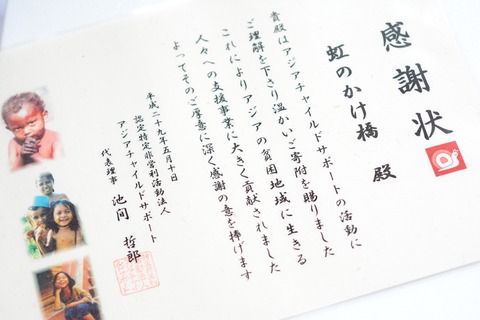 感謝状
虹のかけ橋 殿
貴殿はアジアチャイルドサポートの活動に
ご理解を下さり温かいご寄附を賜りました
これによりアジアの貧困地域に生きる
人々への支援事業に大きく貢献されました
よってそのご厚意に深く感謝の意を捧げます
平成二十九年五月十日
認定特定非営利活動法人
アジアチャイルドサポート
代表理事 池間 哲郎